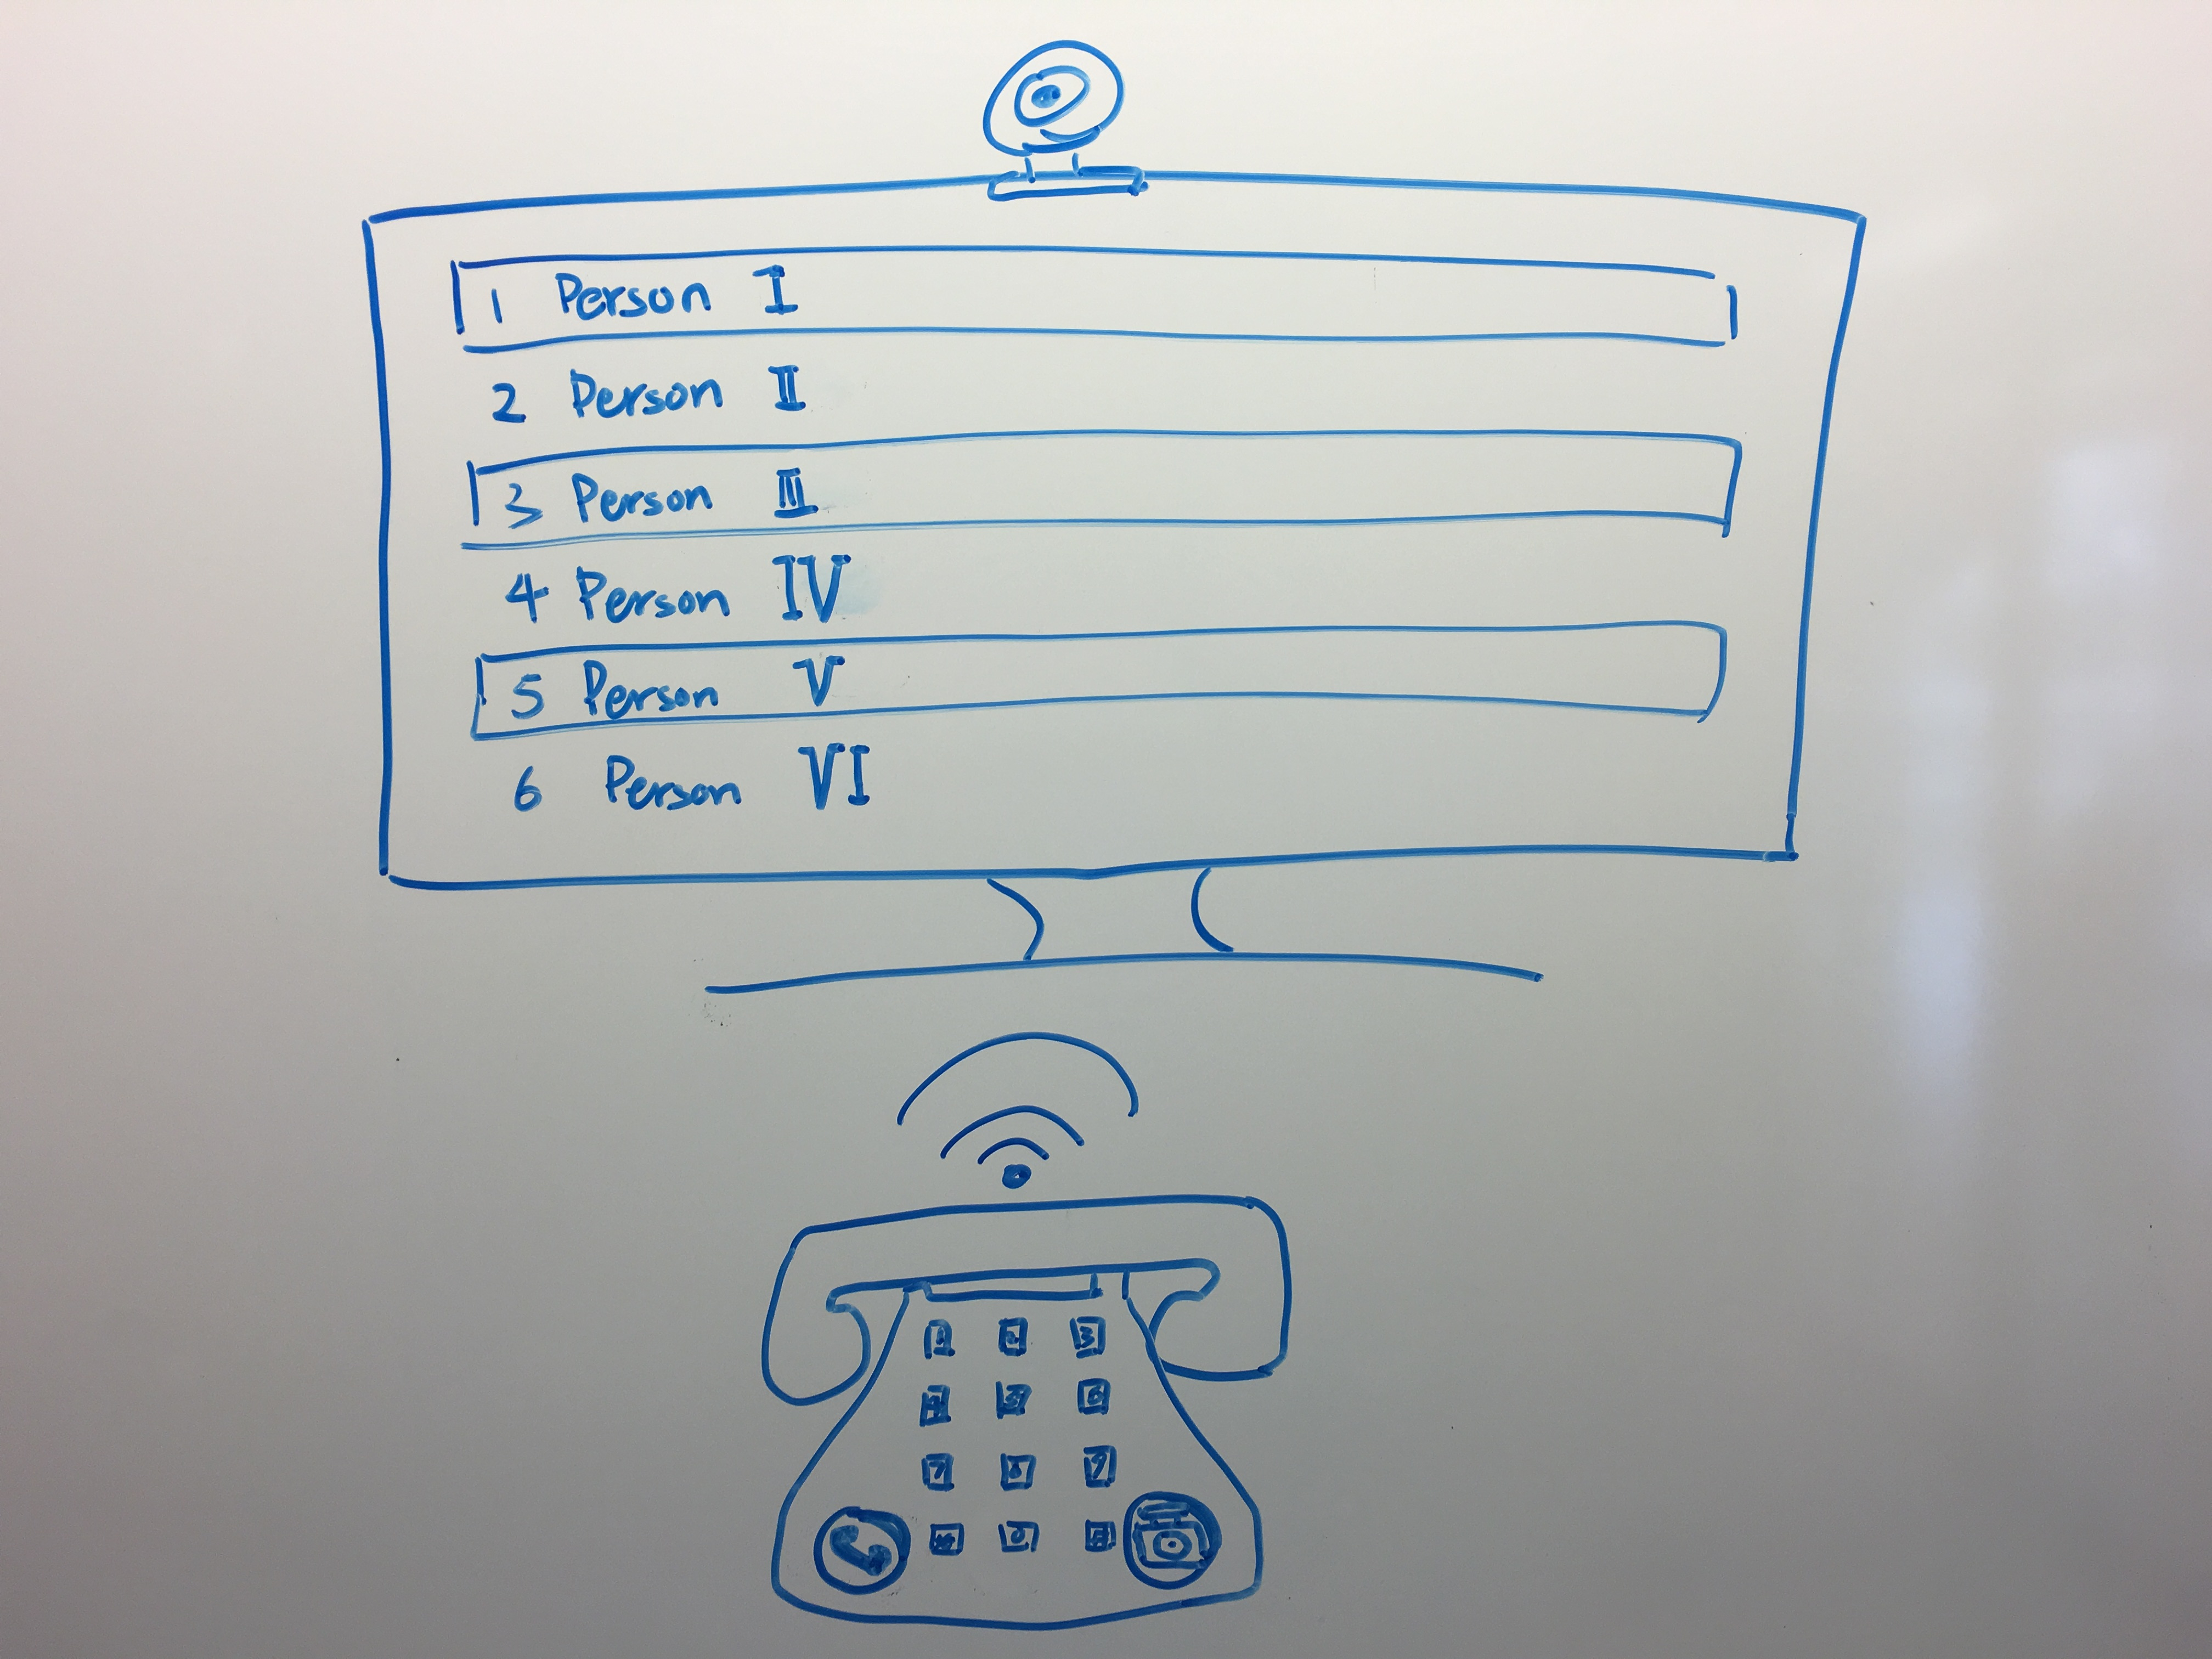 1 Person I
2 Person II
3 Person III
4 Person IV
5 Person V
6 Person VI
1 2 3
4 5 6
7 8 9
* 0 #